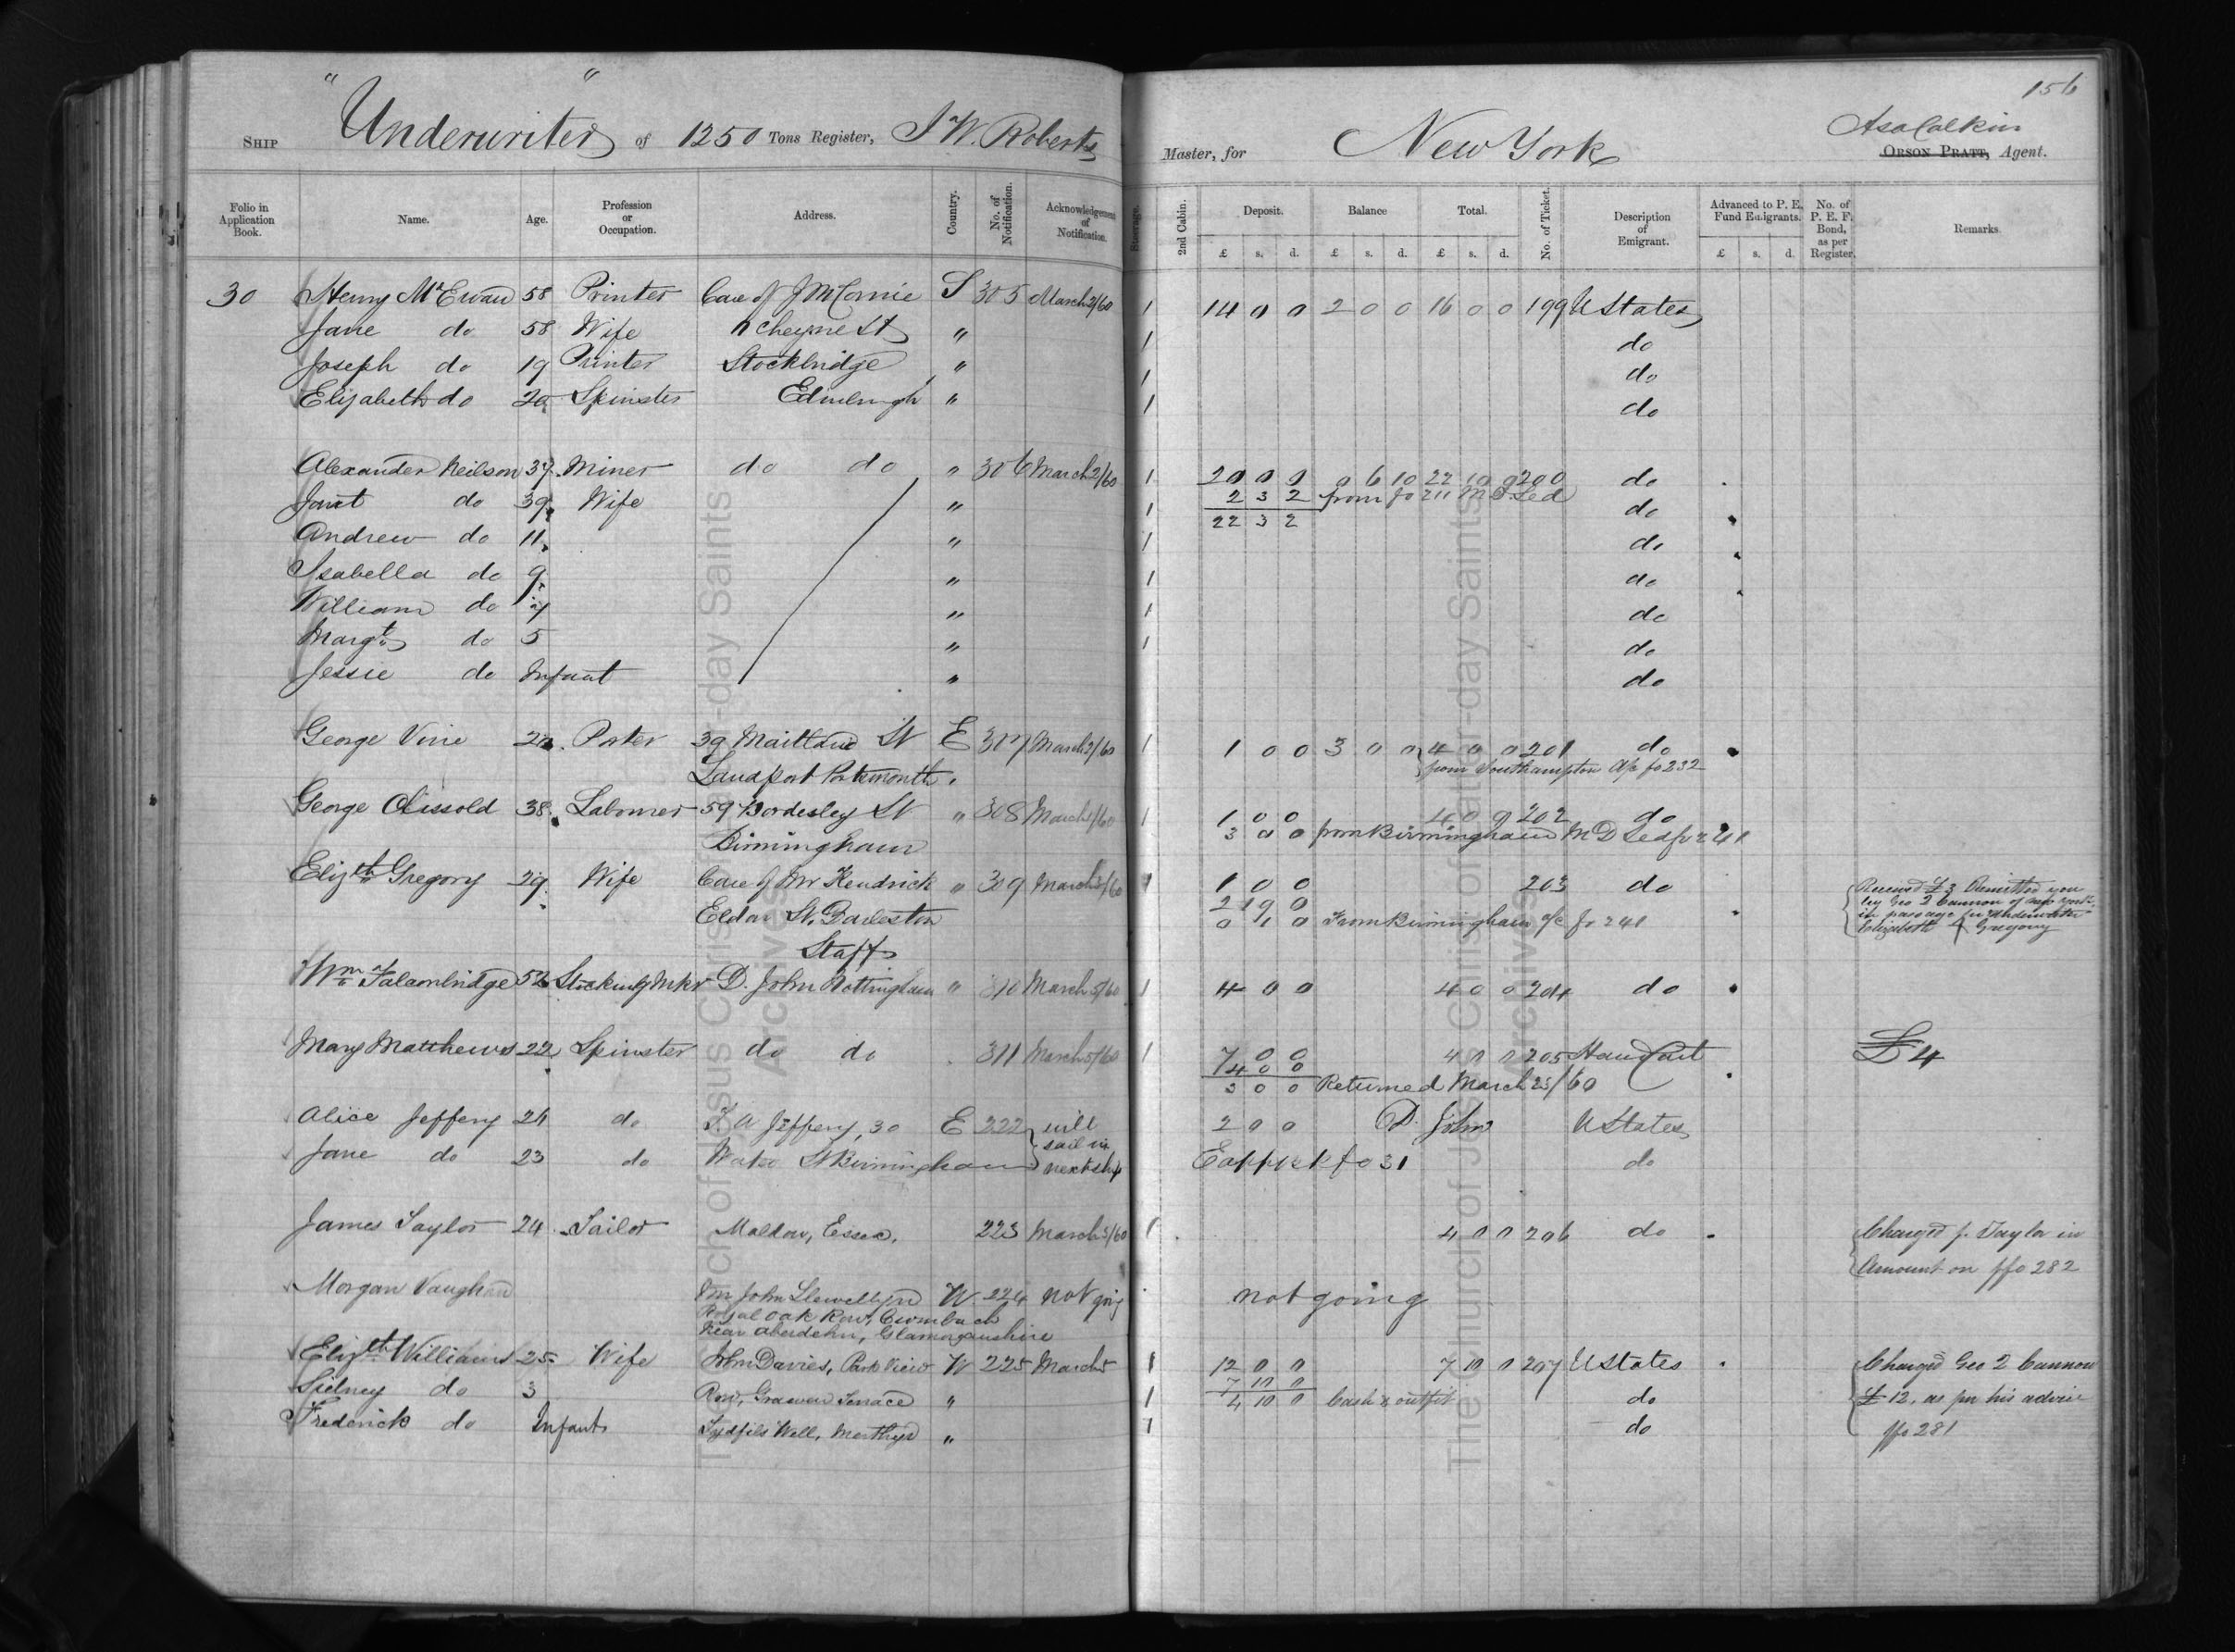 156
Ship "Underwriter" of 1250 Tons Register, J W. Roberts Master, for New York Asa Calkin
Orson Pratt, Agent.
Folio in Application Book. Name. Age. Profession or Occupation. Address. Country. No. of Notification. Acknowledgement of Notification. Steerage. 2nd Cabin. Deposit. £ s. d. Balance £ s. d. Total. £ s. d. No. of Ticket. Description of Emigrant. Advanced to P. E. Fund Emigrants. £ s. d. No. of P. E. F. Bond, as per Register. Remarks
30 Henry McEwan 58 Printer Care of J McComie S 305 March 2/60 1 14 0 0 2 0 0 16 0 0 199 U States
Jane do 58 Wife Cheyne St " 1 do
Joseph do 19 Printer Stockbridge " 1 do
Elizabeth do 20 Spinster Edinburgh " 1 do
Alexander Neilson 37 Miner do do " 306 March 2/60 1 20 0 0 0 6 10 22 10 0 200 do
Janet do 39 Wife " 1 2 3 2 from fo 211 M D Led do
22 3 2
Andrew do 11 " 1 do
Isabella do 9 " 1 do
William do 7 " 1 do
Margt do 5 " 1 do
Jessie do Infant " do
George Vine Porter 39 Maitland St E 307 March 2/60 1 1 0 0 3 0 0 4 0 0 201 do
Landport Portsmouth from Southampton A/c fo 232
George Clissold 38 Labourer 59 Bordesley St " 308 March /60 1 1 0 0 4 0 0 202 do
Birmingham 3 0 0 from Birmingham M D Led fo 241
Elizth Gregory 29 Wife Care of Mr Kendrick " 309 March /60 1 1 0 0 203 do Received £3 Remitted you
Eldon St. 2 19 0 by Geo Q Cannon of New York
0 1 0 From Birmingham a/c fo 241 in passage pr Underwriter
Staff Elizabeth Gregory
Wm Falconbridge 52 Stocking Mkr D. John Nottingham " 310 March 5/60 1 4 0 0 4 0 0 204 do
Mary Matthews 22 Spinster do do 311 March 5/60 1 7 0 0 4 0 0 205 Hand Cart £4
4 0 0
3 0 0 Returned March 23/60
Alice Jeffery 24 do T. A Jeffery, 30 E 222 will 2 0 0 D. John U States
sail in
Jane do 23 do St Birmingham next ship E app bk fo 31 do
James Taylor 24 Sailor Maldon, Essex, 223 March 5/60 1 4 0 0 206 do Charged J. Taylor in
Amount on fo 282
Morgan Vaughan Mr John Llewellyn W. 224 not going not going
Royal Oak Row, Cwmbach
Near Aberdare, Glamorganshire
Elizth Williams 25 Wife John Davies, Park View W 225 March 1 12 0 0 7 10 0 207 U States Charged Geo Q Cannon
7 10 0
Sidney do 3 Row, Terrace " 1 4 10 0 Cash & outfit do £12, as per his advice
Frederick do Infant Tydfils Well, Merthyr " 1 do fo 281
The Church of Jesus Christ of Latter-day Saints
Archives
The Church of Jesus Christ of Latter-day Saints
Archives